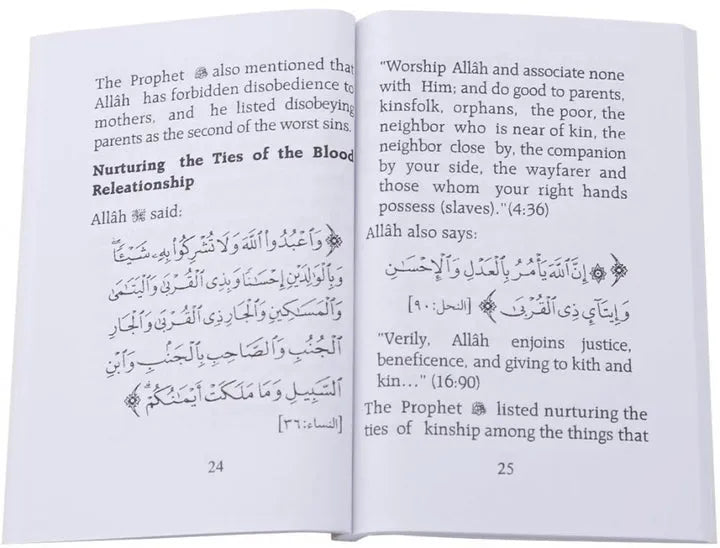 The Prophet ﷺ also mentioned that
Allâh has forbidden disobedience to
mothers, and he listed disobeying
parents as the second of the worst sins.
Nurturing the Ties of the Blood
Releationship
Allâh ﷻ said:
﴿ وَٱعْبُدُوا۟ ٱللَّهَ وَلَا تُشْرِكُوا۟ بِهِۦ شَيْـًٔا ۖ
وَبِٱلْوَٰلِدَيْنِ إِحْسَٰنًا وَبِذِى ٱلْقُرْبَىٰ وَٱلْيَتَٰمَىٰ
وَٱلْمَسَٰكِينِ وَٱلْجَارِ ذِى ٱلْقُرْبَىٰ وَٱلْجَارِ
ٱلْجُنُبِ وَٱلصَّاحِبِ بِٱلْجَنۢبِ وَٱبْنِ
ٱلسَّبِيلِ وَمَا مَلَكَتْ أَيْمَٰنُكُمْ ۗ ﴾
[النساء:٣٦]
24
“Worship Allâh and associate none
with Him; and do good to parents,
kinsfolk, orphans, the poor, the
neighbor who is near of kin, the
neighbor close by, the companion
by your side, the wayfarer and
those whom your right hands
possess (slaves).”(4:36)
Allâh also says:
﴿ ۞ إِنَّ ٱللَّهَ يَأْمُرُ بِٱلْعَدْلِ وَٱلْإِحْسَٰنِ
وَإِيتَآئِ ذِى ٱلْقُرْبَىٰ ﴾ [النحل:٩٠]
“Verily, Allâh enjoins justice,
beneficence, and giving to kith and
kin...” (16:90)
The Prophet ﷺ listed nurturing the
ties of kinship among the things that
25